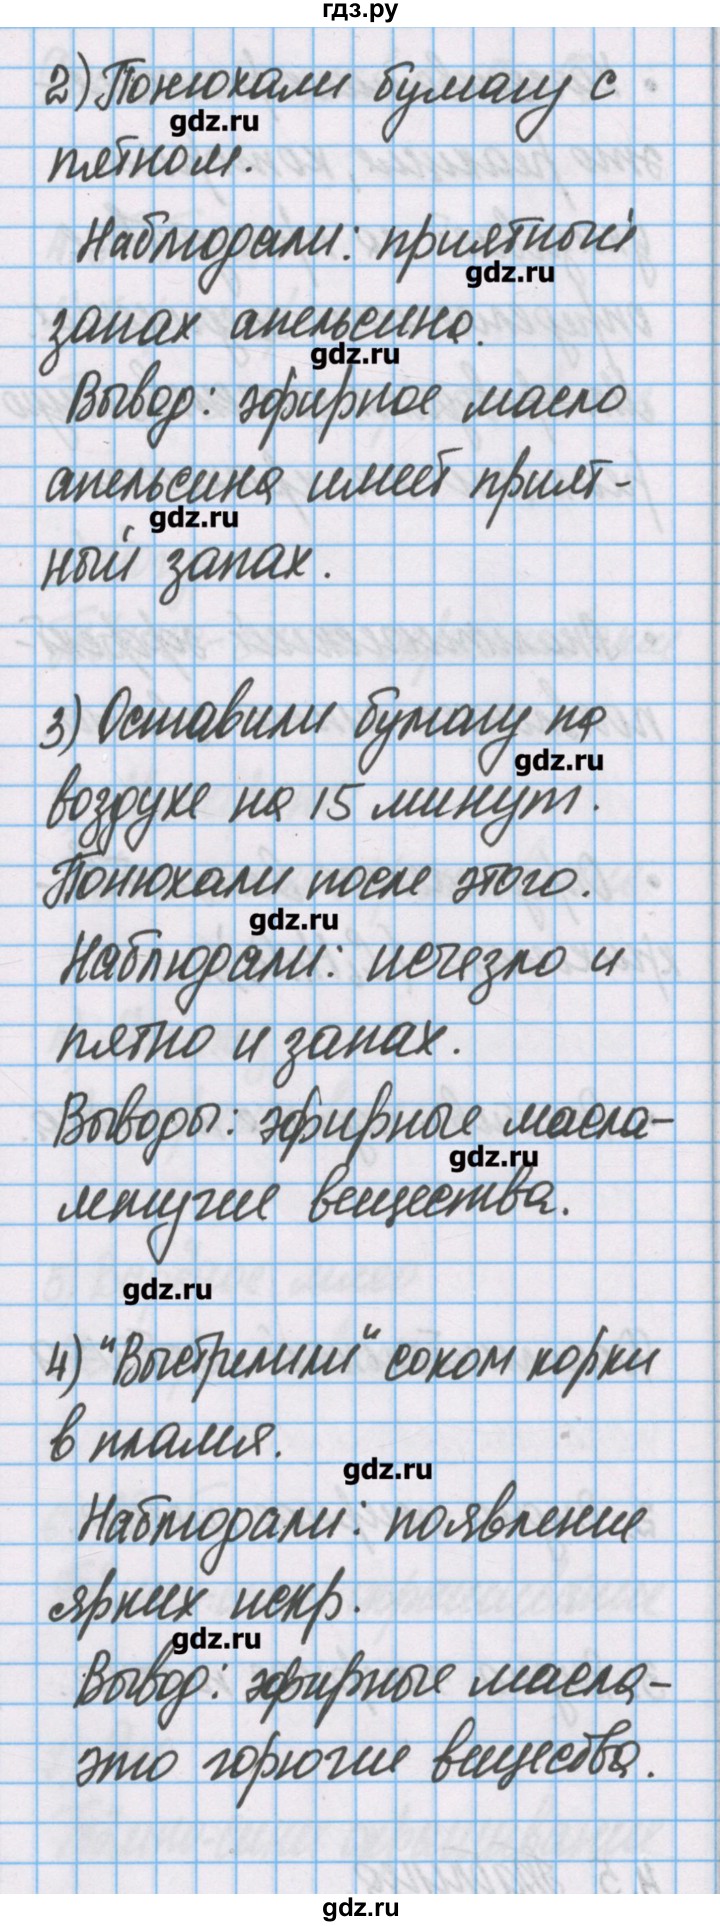 гдз.ру
2) Понюхали бумагу с
gdz.ru
пятном.
Наблюдали: приятный
gdz.ru
запах апельсина.
gdz.ru
Вывод: эфирное масло
апельсина имеет прият-
gdz.ru
ный запах.
3) Оставили бумагу на
gdz.ru
воздухе на 15 минут.
Понюхали после этого.
gdz.ru
Наблюдали: исчезло и
пятно и запах.
Выводы: эфирные масла-
gdz.ru
летучие вещества.
gdz.ru
4) "Выстрелили" соком корки
в пламя.
gdz.ru
Наблюдали: появление
ярких искр.
gdz.ru
Вывод: эфирные масла-
это горючие вещества.
gdz.ru